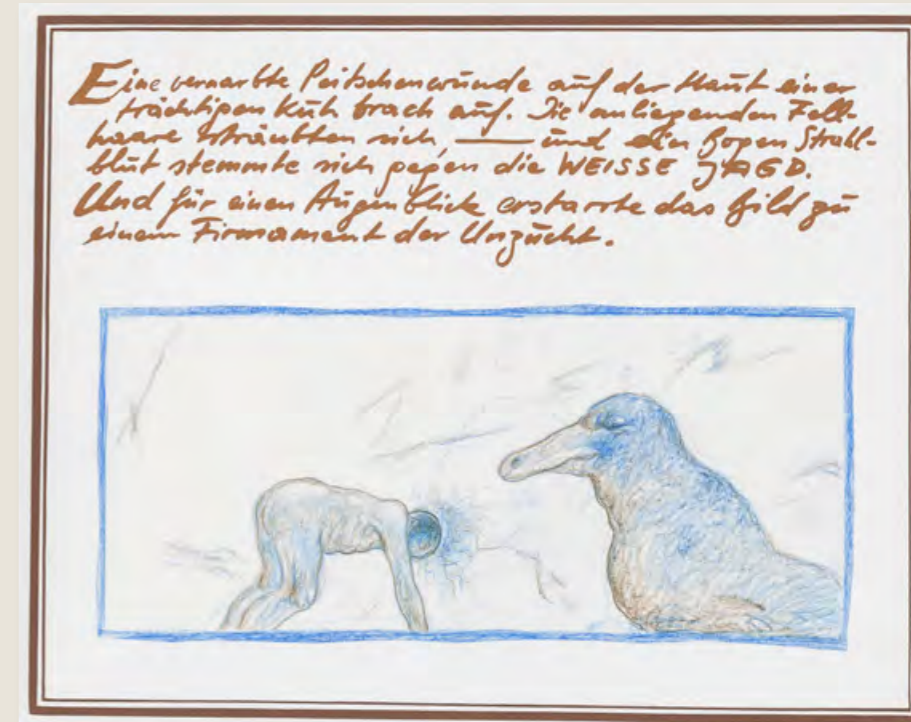 Eine vernarbte Peitschenwunde auf der Haut einer
trächtigen Kuh brach auf. Die anliegenden Fell-
haare sträubten sich, — und ein Bogen Strahl-
blut stemmte sich gegen die WEISSE JAGD.
Und für einen Augenblick erstarrte das Bild zu
einem Firmament der Unzucht.